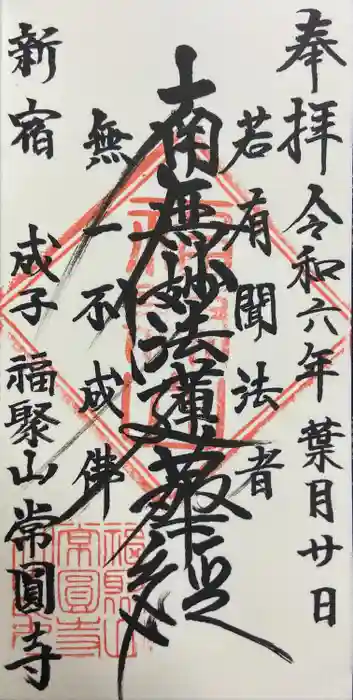 奉拝
令和六年葉月廿日
若有聞法者
南無妙法蓮華経
無一不成佛
新宿 成子 福聚山 常圓寺
福聚山
常圓寺